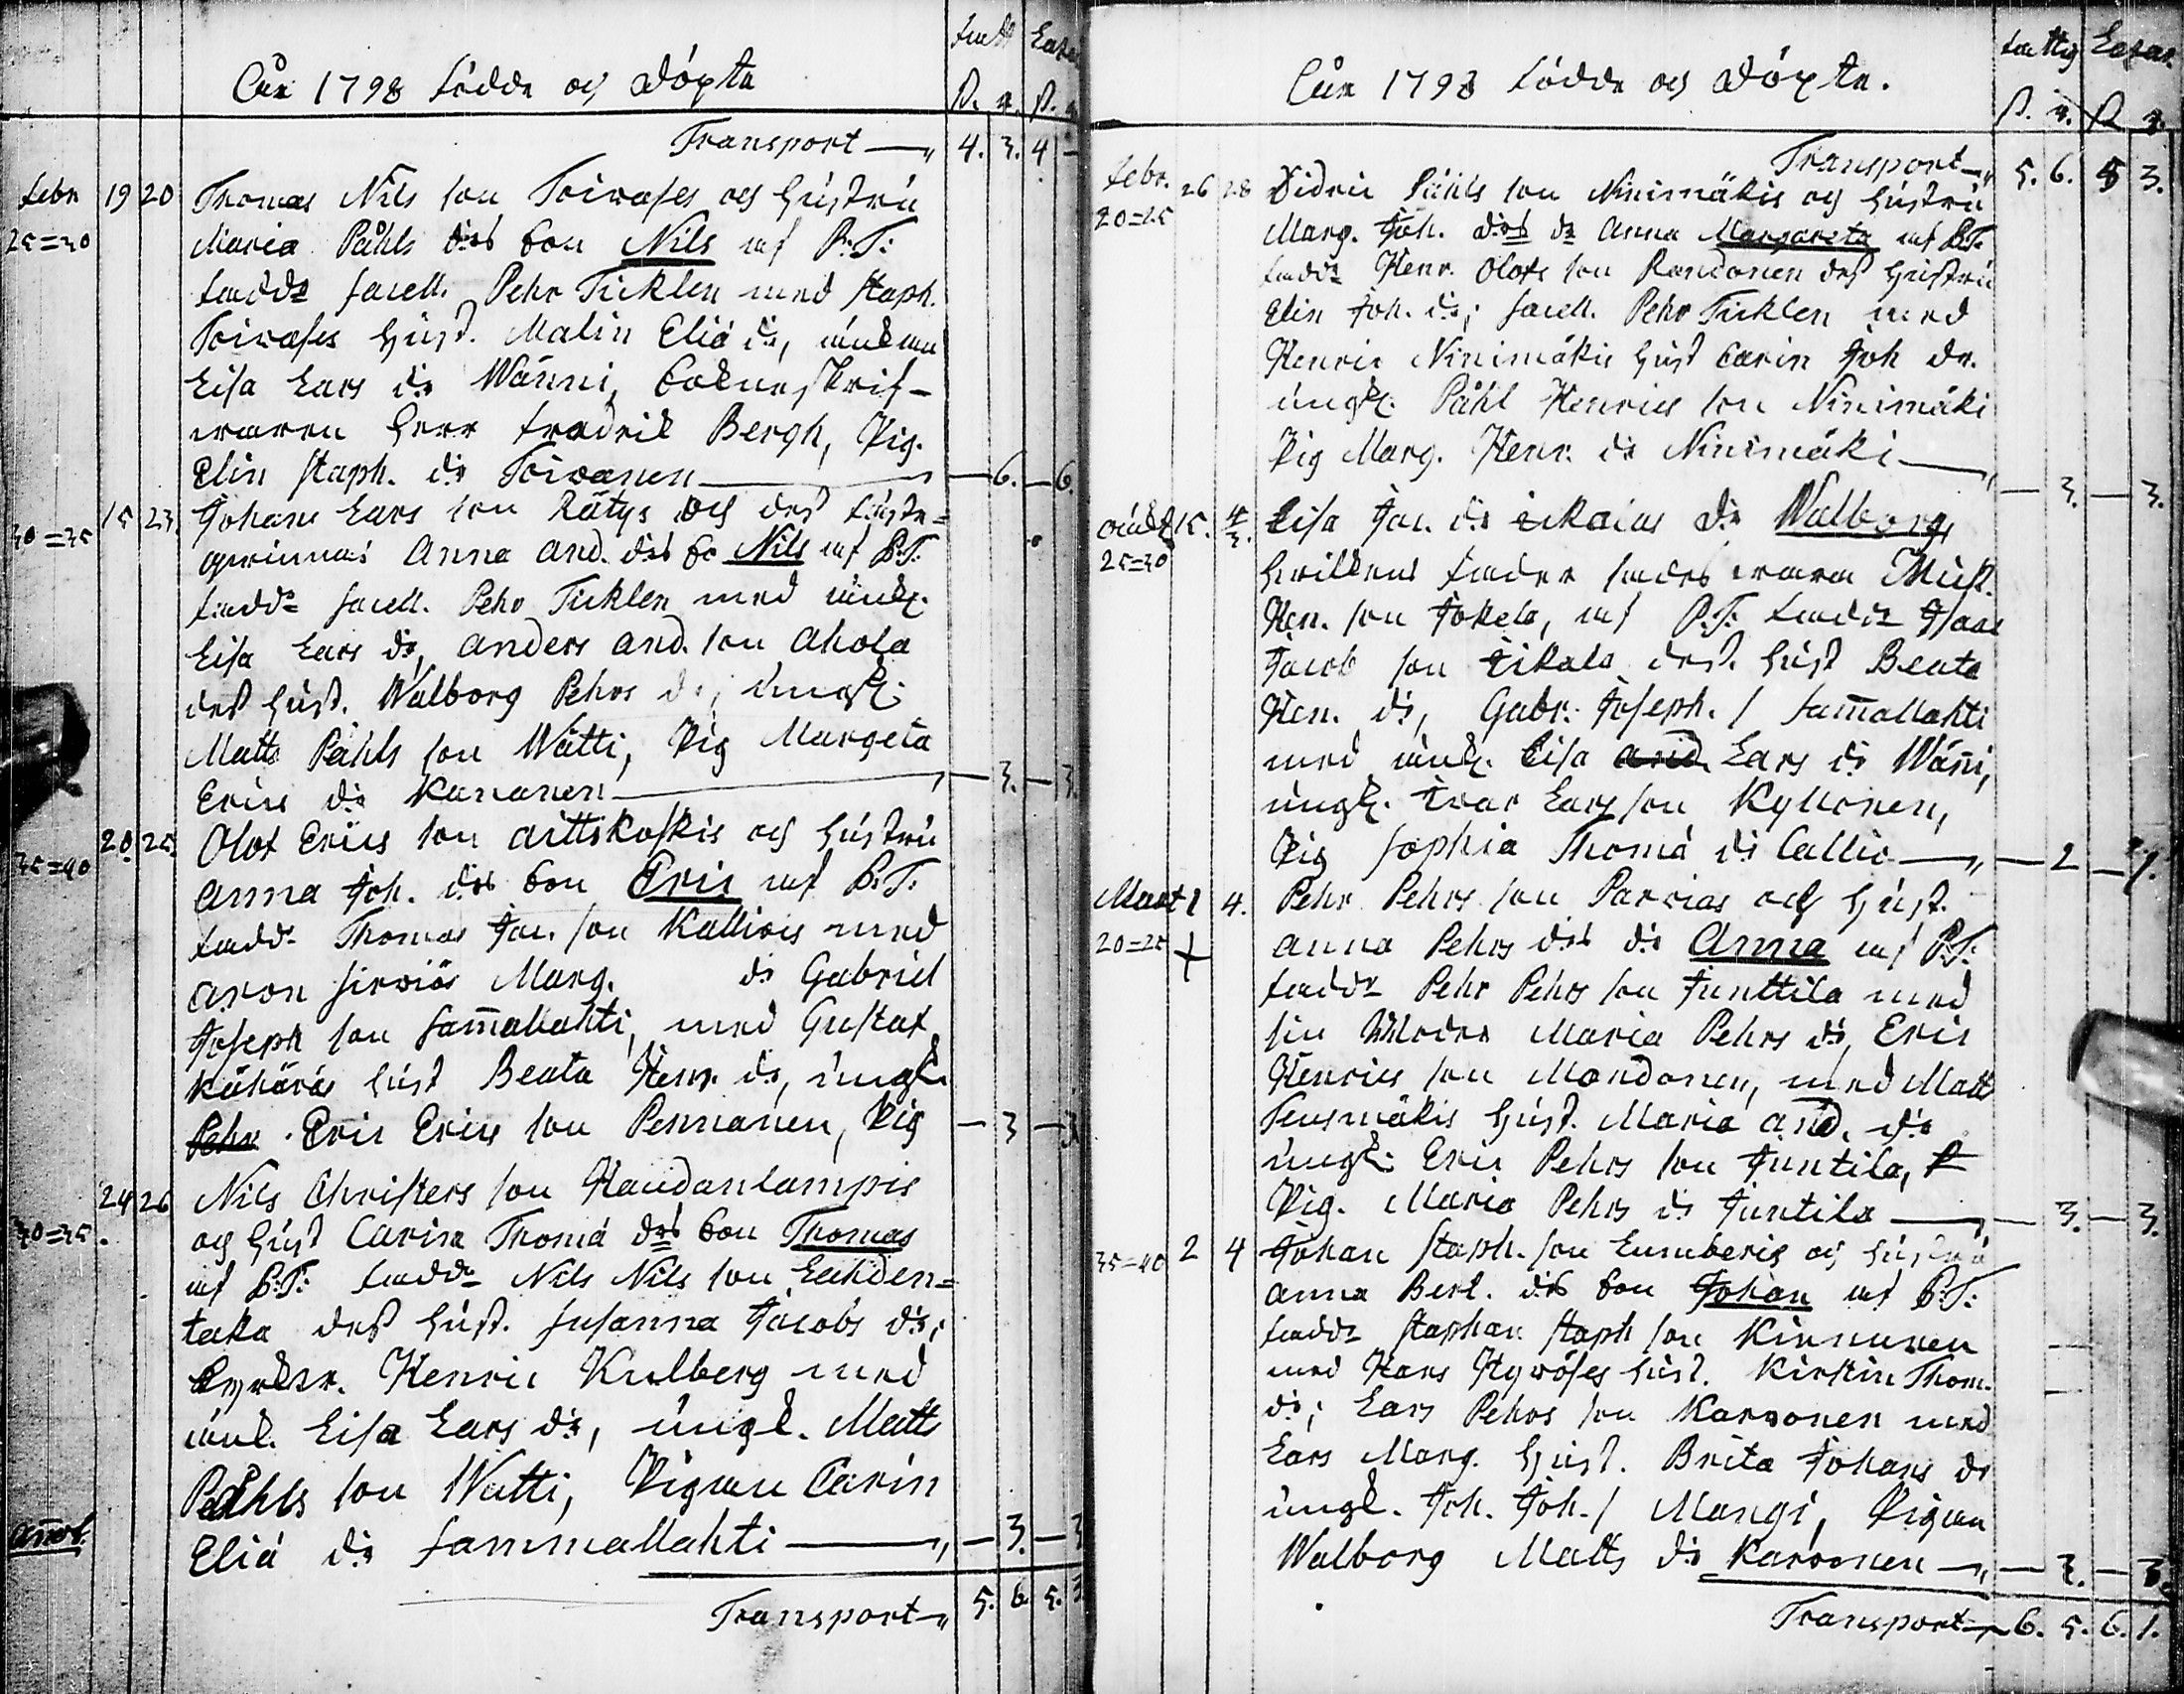 Åår 1798 födde och Döpta
fatt Lasar
P. r. P. r.
Transport — 4. 3. 4 –
Febr 19 20 Thomas Nils son Toivases och Hustru
25=30 Maria Påhls drs son Nils af B:T:
fadde Sacell. Pehr Ticklen med Staph.
Toivases Hust. Malin Eliæ dr, änkan
Lisa Lars dr Wänni, Bokneskrif-
waren Herr Fredrik Bergh, Pig.
Elin Staph. dr Toivanen — 6. — 6.
30=35 15 23. Johans Lars son Rätys och des Fäste=
qwinnas Anna And. drs So Nils af B:T:
faddr Sacell. Pehr Ticklen med änk.
Lisa Lars dr, Anders And. son Ahola
des Hust. Walborg Pehrs dr, Ungk:
Matts Påhls son Wätti, Pig Margeta
Erics dr Kananen — 3. — 3.
35=40 20. 25. Olof Erics son Aittokoskis och Hustru
Anna Joh. drs Son Eric af B:T:
fadd. Thomas Jac. son Kallivis med
Aron Sirviös Marg. dr Gabriel
Joseph son Sam̄allahti, med Gustaf
Kähäräs Hust Beata Henr. dr, ungk.
Pehr. Eric Erics son Pennanen, Pig — 3 — 3
30=35. 24 26 Nils Christers son Haudanlampis
och Hust Carin Thomæ drs Son Thomas
af B:T: faddr Nils Nils son Lehden=
taka des Hust. Susanna Jacobs dr,
Kyrkvr. Henric Kulberg med
änk. Lisa Lars dr, ungk. Matts
Påhls son Wätti, Pigan Carin
an̄ot. Eliæ dr Sammallahti — 3. — 3
Transport 5. 6 5. 3
Åår 1798 födde och Döpta.
fattig Lasar.
P. r. P. r.
Transport 5. 6. 5 3.
Febr. 26 28 Didric Påhls son Ninimäkis och Hustru
20=25 Marg. Joh. drs dr Anna Margareta af B:T.
faddr Henr. Olofs son Randonen des Hustru
Elin Joh. dr, Sacell. Pehr Ticklen med
Henric Ninimäkis Hust Carin Joh dr.
ungk. Påhl Henrics son Ninimäki
Pig Marg. Henr. dr Ninimäki — 3. — 3.
15. 4/3. Lisa Jac. dr Ikaias dr Walborg
25=30 Hvilkens fader sades wara Musk.
Hen. son Jokela, af B.T: faddr Isaac
Jacob son Ikala des. Hust Beata
Hen. dr, Gabr: Joseph. / Sam̄allahti
med änk. Lisa And. Lars dr Wän̄i,
ungk. Ivar Lars son Kyllönen,
Pig Sophia Thomæ dr Callio — 2 — 7.
Mart 1 4. Pehr Pehrs son Parvias och Hust.
20=25 + Anna Pehrs drs dr Anna af B:T:
faddr Pehr Pehrs son Junttila med
sin Moder Maria Pehrs dr, Eric
Henrics son Mondonen, med Matts
Tensmäkis Hust. Maria And. dr
ungk: Eric Pehrs son Juntila,
Pig. Maria Pehrs dr Juntila — 3. — 3.
35=40 2 4 Johan Staph. son Lumberis och Hustru
Anna Berl. drs Son Johan af B:T:
faddr Staphan Staph son Kinnunen
med Hans Hyvöses Hust. Kirstin Thom.
dr; Lars Pehrs son Karvonen med
Lars Marg. Hust. Brita Johans dr
ungk. Joh. Joh. / Mangi, Pigan
Walborg Matts dr Karvonen — 3. — 3.
Transport 6. 5. 6. 1.